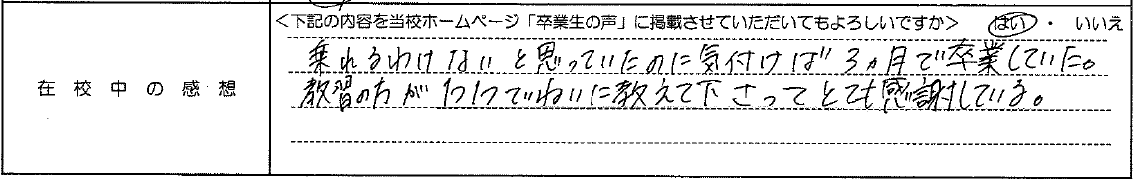 <下記の内容を当校ホームページ「卒業生の声」に掲載させていただいてもよろしいですか> はい・いいえ
在校中の感想
乗れるわけないと思っていたのに気付けば3ヵ月で卒業していた。
教習の方が1つ1つていねいに教えて下さってとても感謝している。